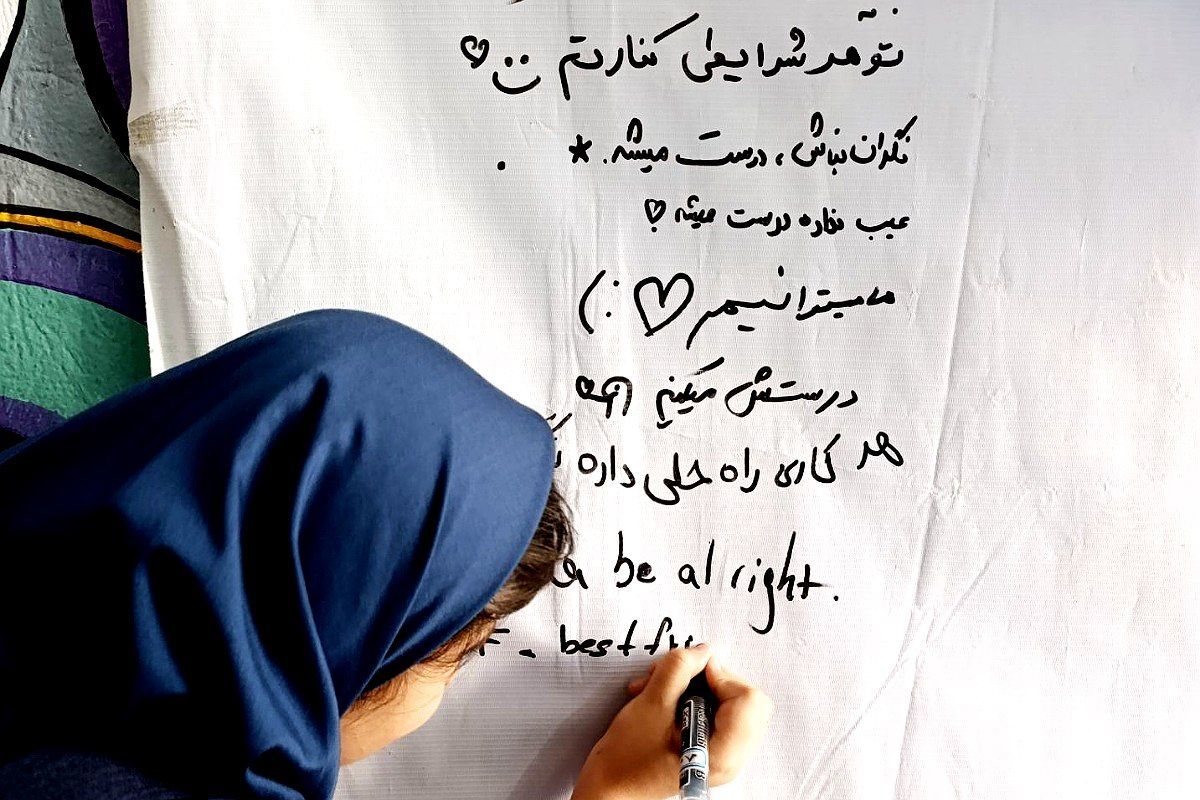 تو هر شرایطی کنارتم
نگران نباش، درست میشه.
عیب نداره درست میشه
ما میتوانیم :)
درستش میکنیم
هر کاری راه حلی داره
be al right.
best